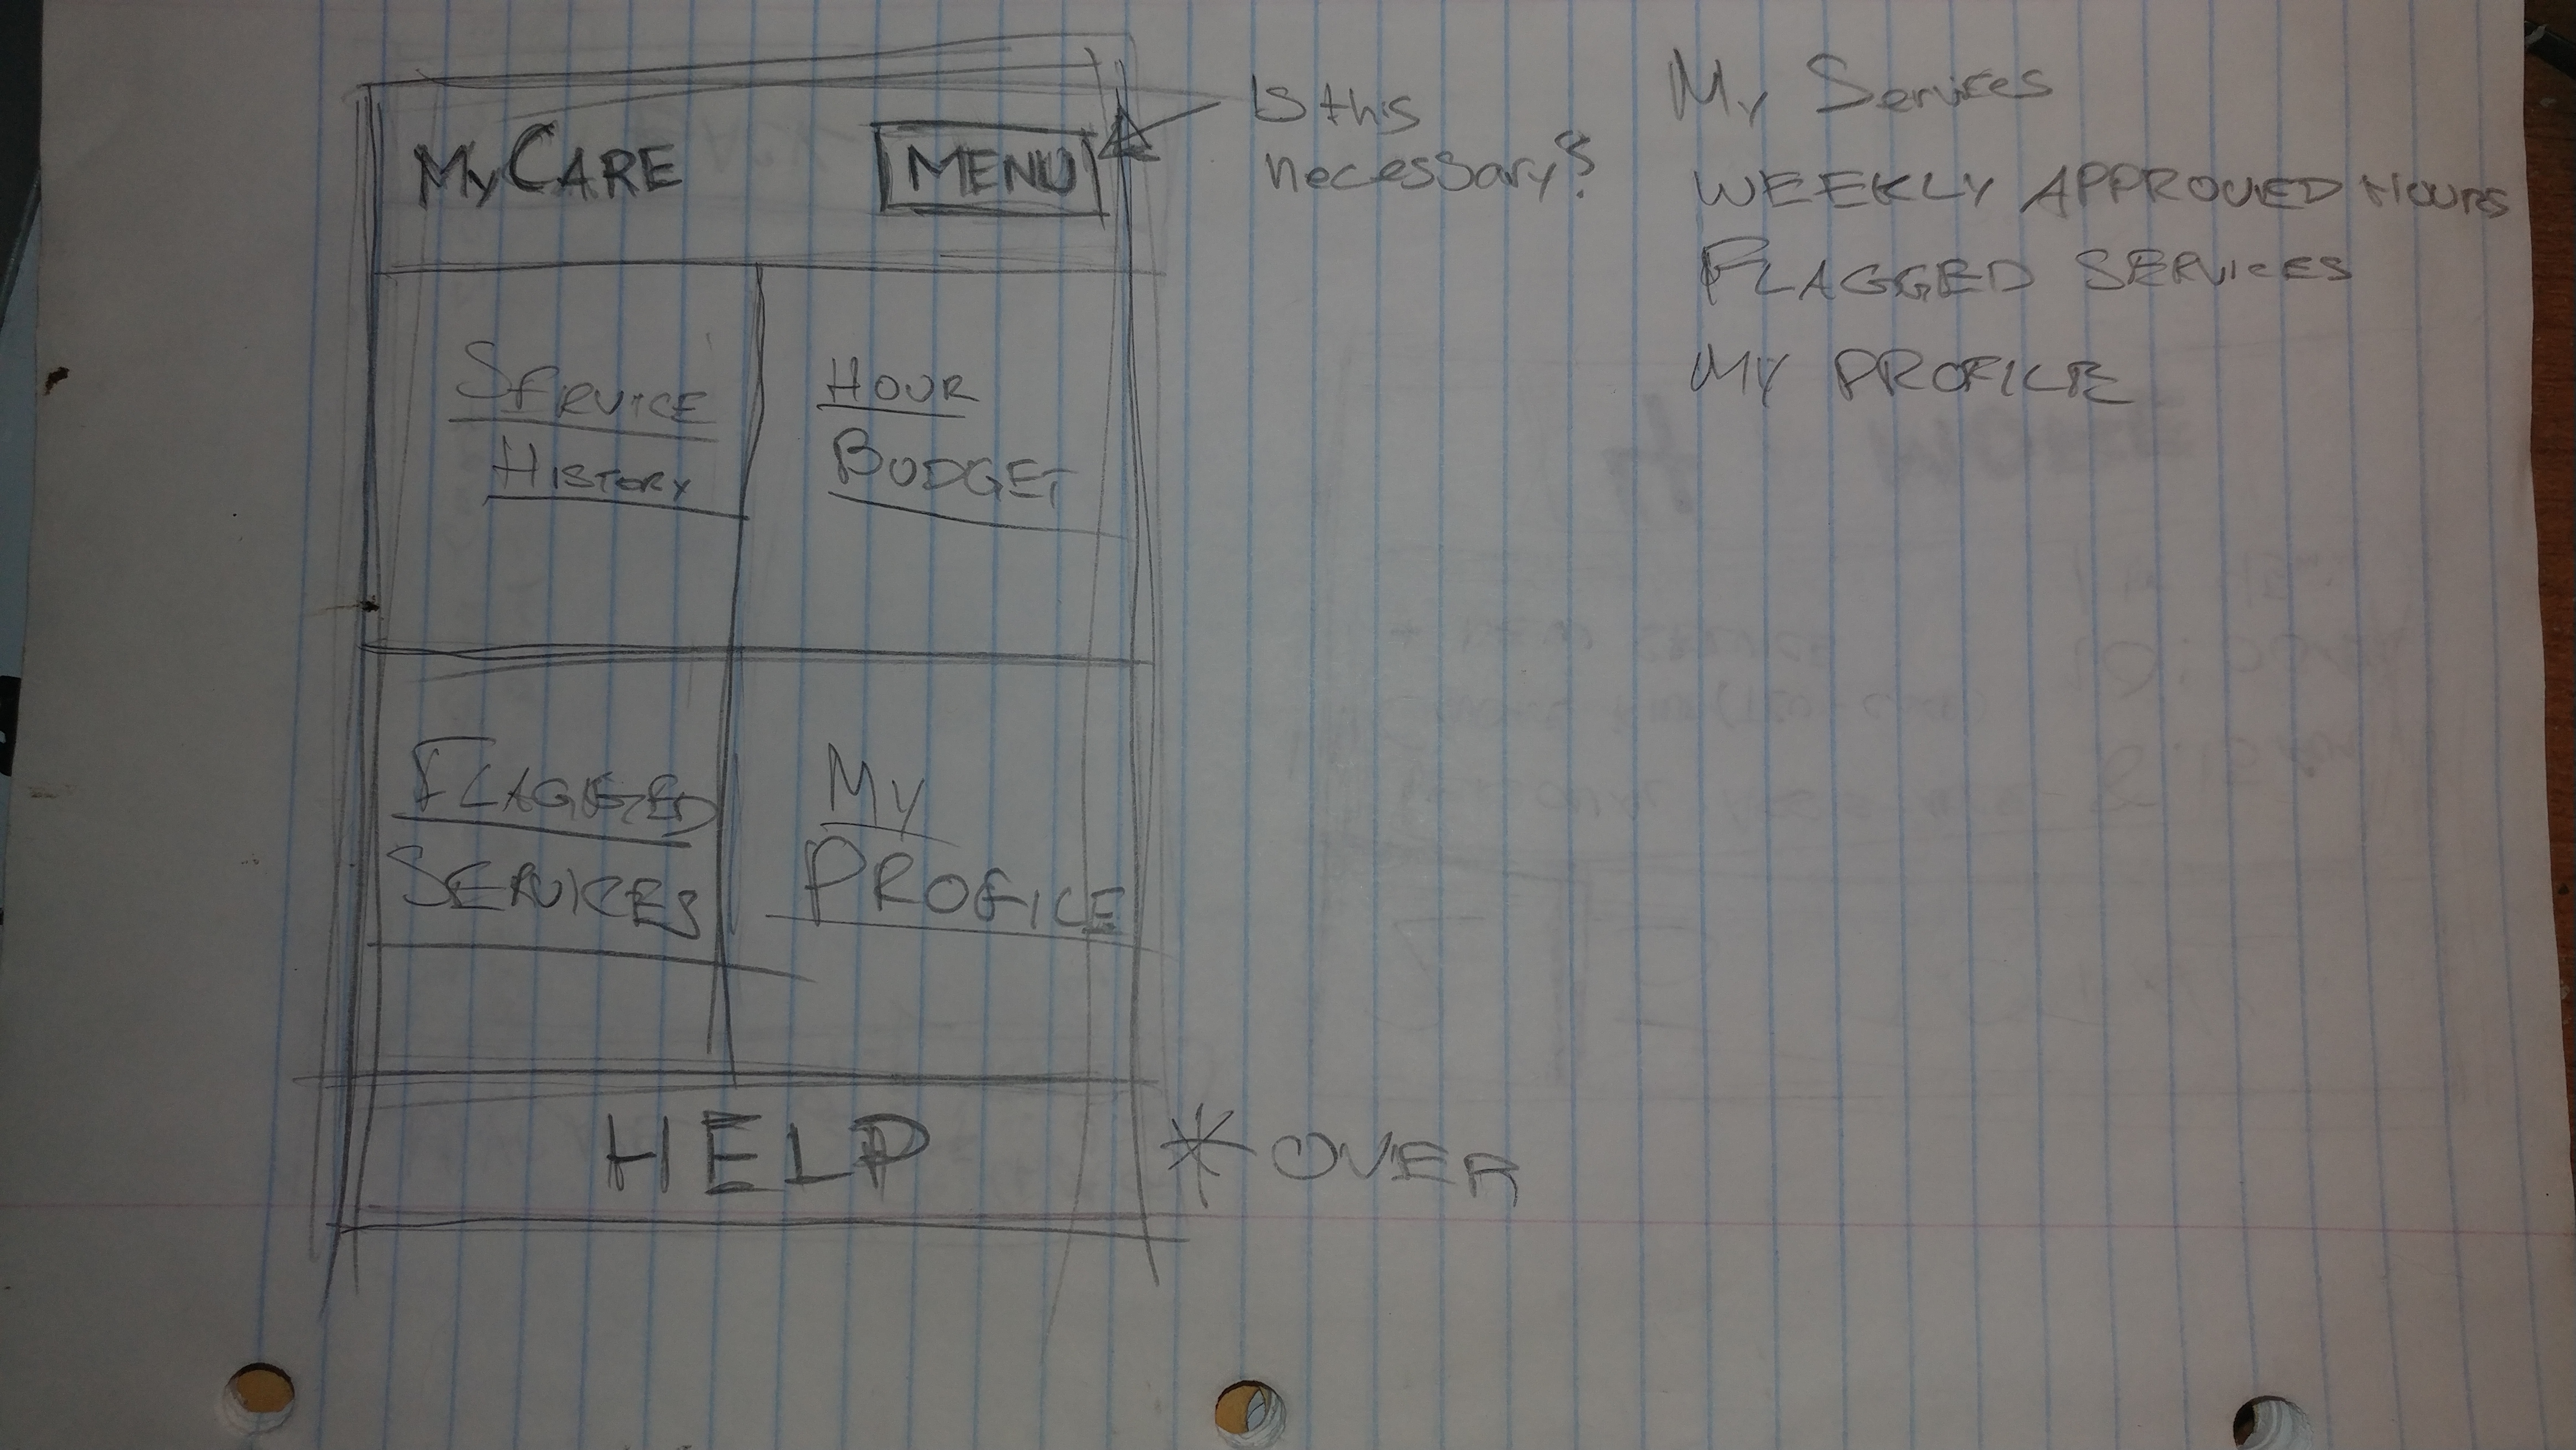 MyCARE
MENU
Is this
necessary?
SERVICE
HISTORY
HOUR
BUDGET
FLAGGED
SERVICES
My
PROFILE
HELP
* OVER
My Services
WEEKLY APPROVED HOURS
FLAGGED SERVICES
MY PROFILE